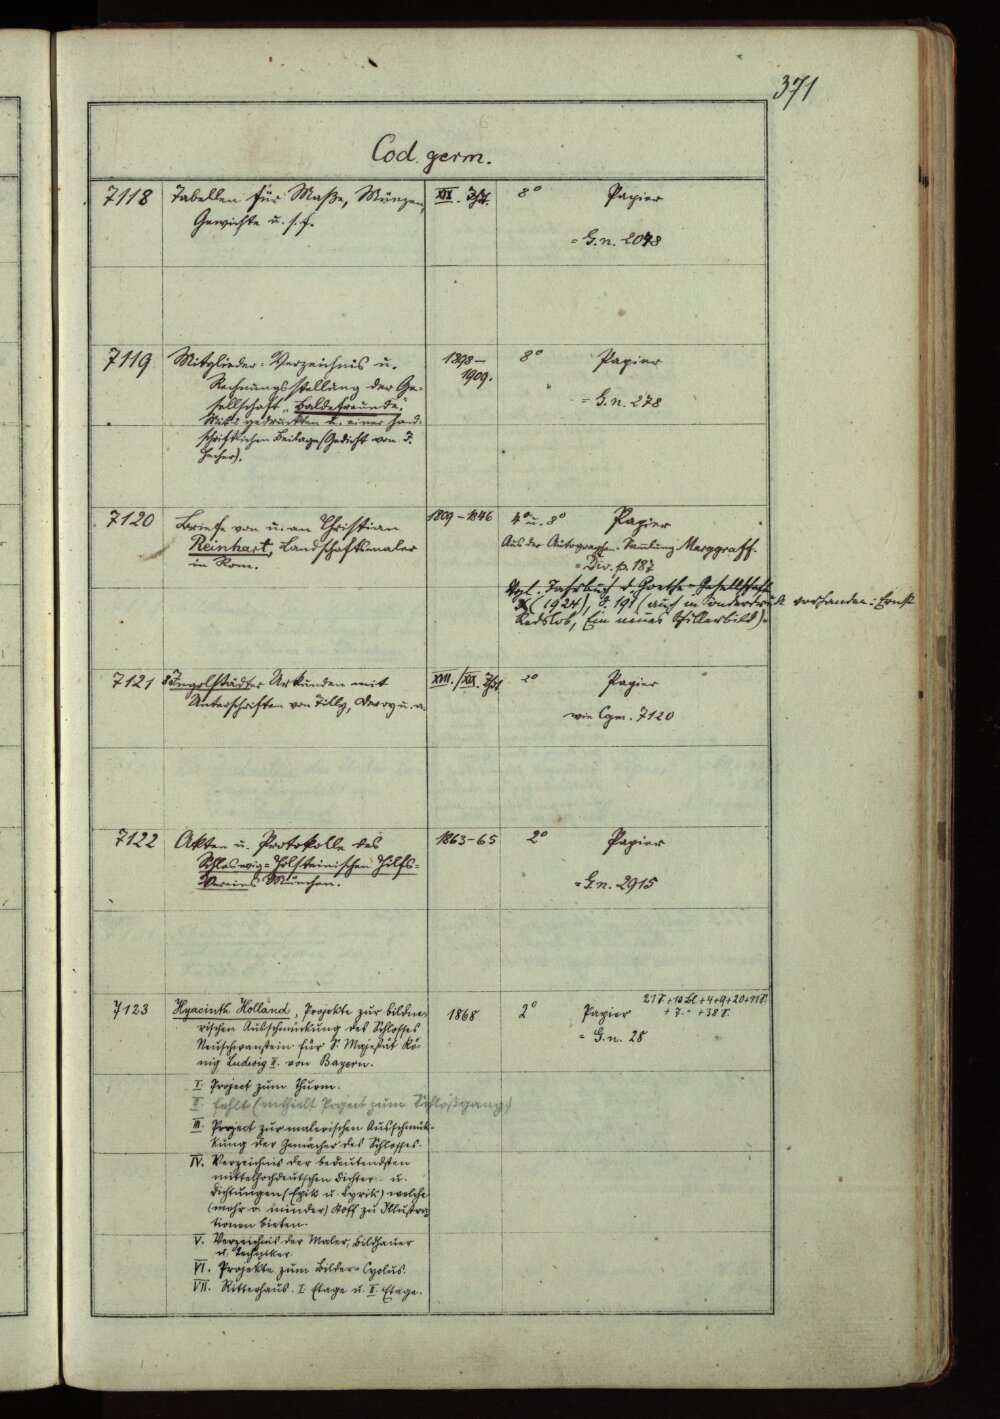 371
Cod. germ.
7118 Tabellen für Maße, Münzen, XIX. Jhdt. 8° Papier
Gewichte u. s. f.
= G. n. 2048
7119 Mitglieder-Verzeichnis u. 1898– 8° Papier
Rechnungsstellung der Ge- 1909.
sellschaft „Baldefreunde“. = G. n. 278
Mit gedruckten u. einer hand-
schriftlichen Beilage (Gedicht von J.
7120 Briefe von u. an Christian 1809–1846 4° u. 8° Papier
Reinhart, Landschaftsmaler Aus der Autographen-Sammlung Marggraff.
in Rom. = Div. p. 187
Vgl. Jahrbuch d. Goethe-Gesellschaft
X (1924), S. 191 (auch in Sonderdruck vorhanden: Ernst
Redslob, Ein neues Schillerbild).
7121 8 Ingolstädter Urkunden mit XVII./XIX. Jhdt. 2° Papier
Unterschriften von Tilly, Deroy u. a.
wie Cgm. 7120
7122 Akten u. Protokolle des 1863–65 2° Papier
Schleswig-Holsteinischen Hilfs-
Vereins München. = G. n. 2915
7123 Hyacinth Holland, Projekte zur bildne- 1868 2° Papier 21 S. + 10 Bl. + 4 + 9 + 20 + 11 S.
+ 7 + 38 S.
rischen Ausschmückung des Schlosses
Neuschwanstein für S. Majestät Kö- = G. n. 28
nig Ludwig II. von Bayern.
I. Project zum Thurm.
II. fehlt (enthielt Project zum Schloßgang)
III. Project zur malerischen Ausschmük-
kung der Gemächer des Schlosses.
IV. Verzeichnis der bedeutendsten
mittelhochdeutschen Dichter u.
Dichtungen (Epik u. Lyrik) welche
(mehr o. minder) Stoff zu Illustra-
tionen bieten.
V. Verzeichnis der Maler, Bildhauer
u. Techniker.
VI. Projekte zum Bilder-Cyclus.
VII. Ritterhaus. I. Etage u. II. Etage.